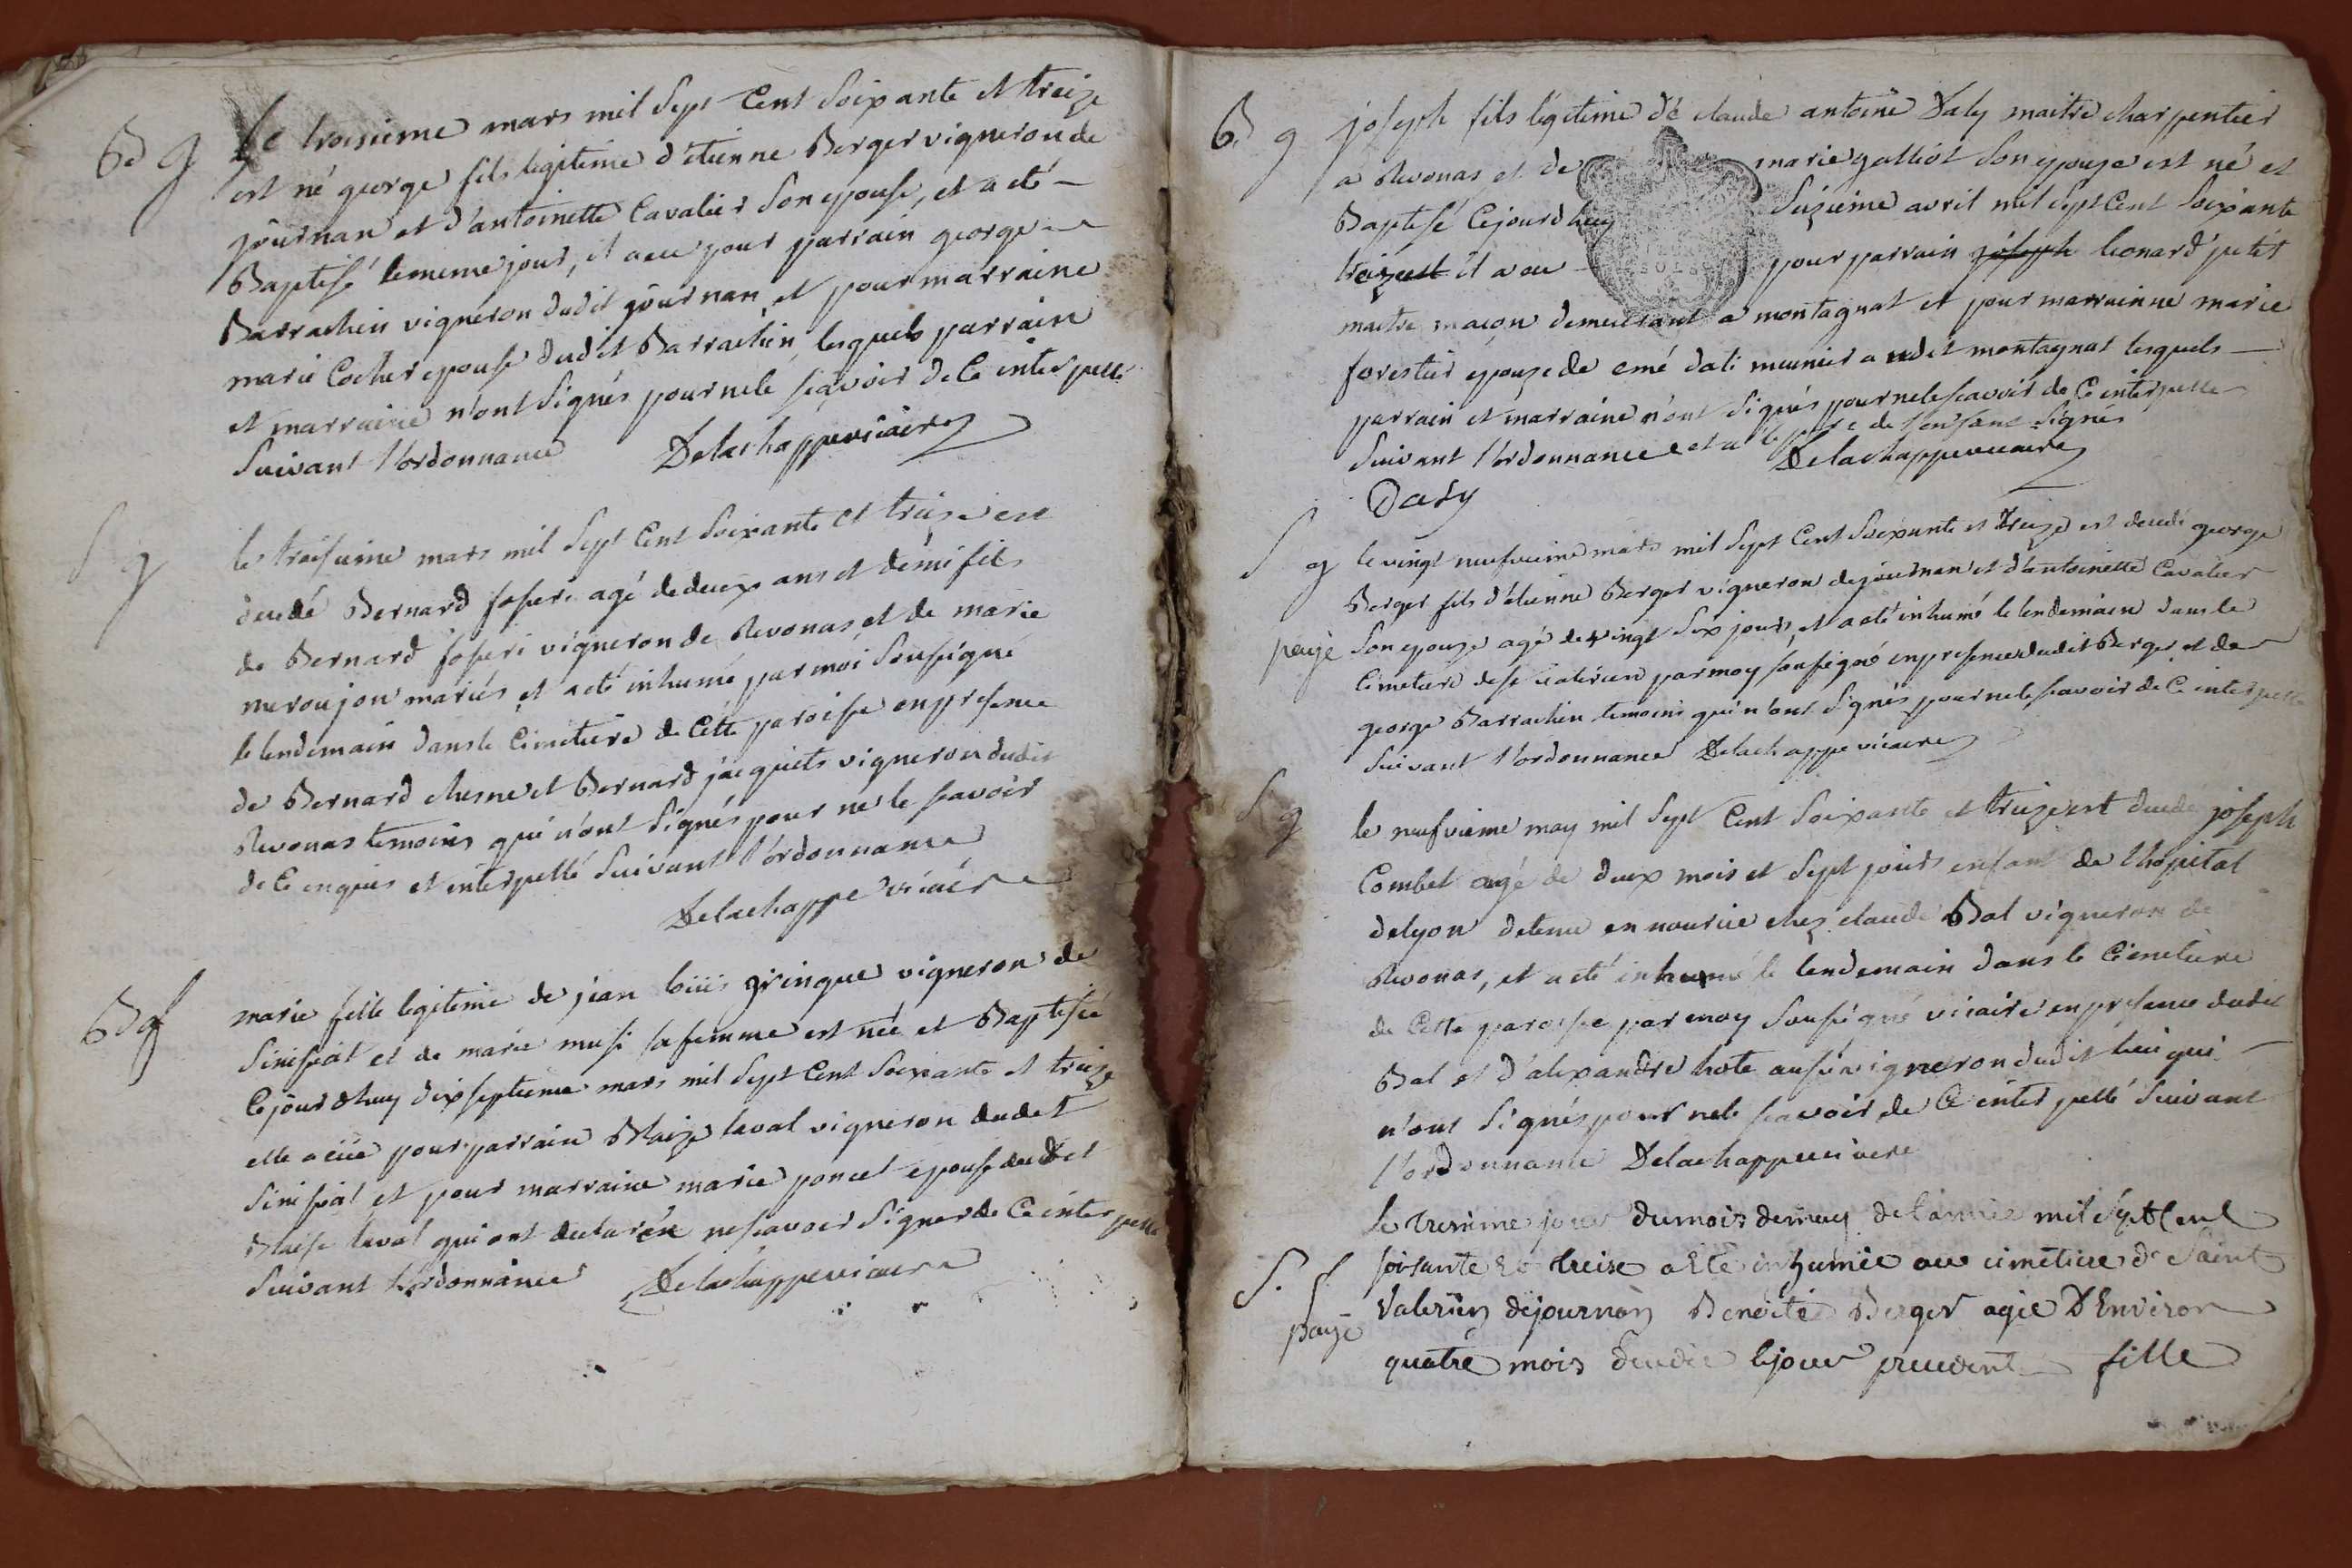 B g
Le troisieme mars mil Sept Cent Soixante et treize
est né george fils legitime d'etienne Berger vigneron de
journan et d'antoinette Cavalier Son epouse, et a eté
Baptisé le meme jour, il a eu pour parrain george
Barrachin vigneron dudit journan et pour marraine
marie Cocher epouse dudit Barrachin, lesquels parrain
et marraine n'ont Signés pour ne le sçavoir de Ce interpellé
Suivant l'ordonnance Delachappe vicaire
S g
le troisieme mars mil Sept Cent Soixante et treize est
decedé Bernard agé de deux ans et demi fils
de Bernard vigneron de Revonas et de marie
meroujon mariés et a eté inhumé par moi Soussigné
le lendemain dans le Cimetiere de Cette paroisse en presence
de Bernard chesne et Bernard jacquets vigneron dudit
Revonas temoins qui n'ont Signés pour ne le sçavoir
de Ce enquis et interpellé Suivant l'ordonnance
Delachappe vicaire
B f
marie fille legitime de jean loüis gringue vigneron de
Sinissiat et de marie musi sa femme est née et Baptisée
Cejourdhuy dixseptieme mars mil Sept Cent Soixante et treize
elle a eüe pour parrain Blaize laval vigneron dudit
Sinissiat et pour marraine marie poncet epouse dudit
Blaise laval qui ont declaré ne sçavoir Signer de Ce interpellé
Suivant l'ordonnance Delachappe vicaire
B g
joseph fils légitime de claude antoine Daly maitre charpentier
a Revonas et de marie galliot Son epouze est né et
Baptisé Cejourdhuy Sixieme avril mil Sept Cent Soixante
treize il a eu pour parrain joseph leonard petit
maitre maçon demeurant a montagnat et pour marrainne marie
forestier epouze de emé dali meunier audit montagnat lesquels
parrain et marraine n'ont Signés pour ne le scavoir de Ce interpelle
Suivant l'ordonnance et a le pere de l'enfant Signés
Delachappe vicaire
Daly
S g
le vingt neufvieme mars mil Sept Cent Soixante et treize est decedé george
Berger fils d'etienne Berger vigneron de journan et d'antoinette Cavalier
payé
Son epouze agé de vingt Six jours, et a eté inhumé le lendemain dans le
Cimetiere de st valerien par moy soussigné en presence dudit Berger et de
george Barrachin temoins qui n'ont Signés pour ne le scavoir de Ce interpellé
Suivant l'ordonnance Delachappe vicaire
S g
le neufvieme may mil Sept Cent Soixante et treize est decedé joseph
Combet agé de deux mois et Sept jours enfant de l'hopital
de lyon detenu en nourice chez claude Bal vigneron de
Revonas, et a eté inhumé le lendemain dans le Cimetiere
de Cette paroisse par moy Soussigné vicaire en presence dudit
Bal et d'alexandre hote aussi vigneron dudit lieu qui
n'ont Signés pour ne le scavoir de Ce interpellé Suivant
l'ordonnance Delachappe vicaire
S. f
le tresieme jour du mois de may de l'année mil Sept Cent
soisante et treise a Eté inhumée au cimetiere de Saint
Valerien de journan Benoite Berger agée D'Environ
payé
quatre mois decedée le jour precedent fille